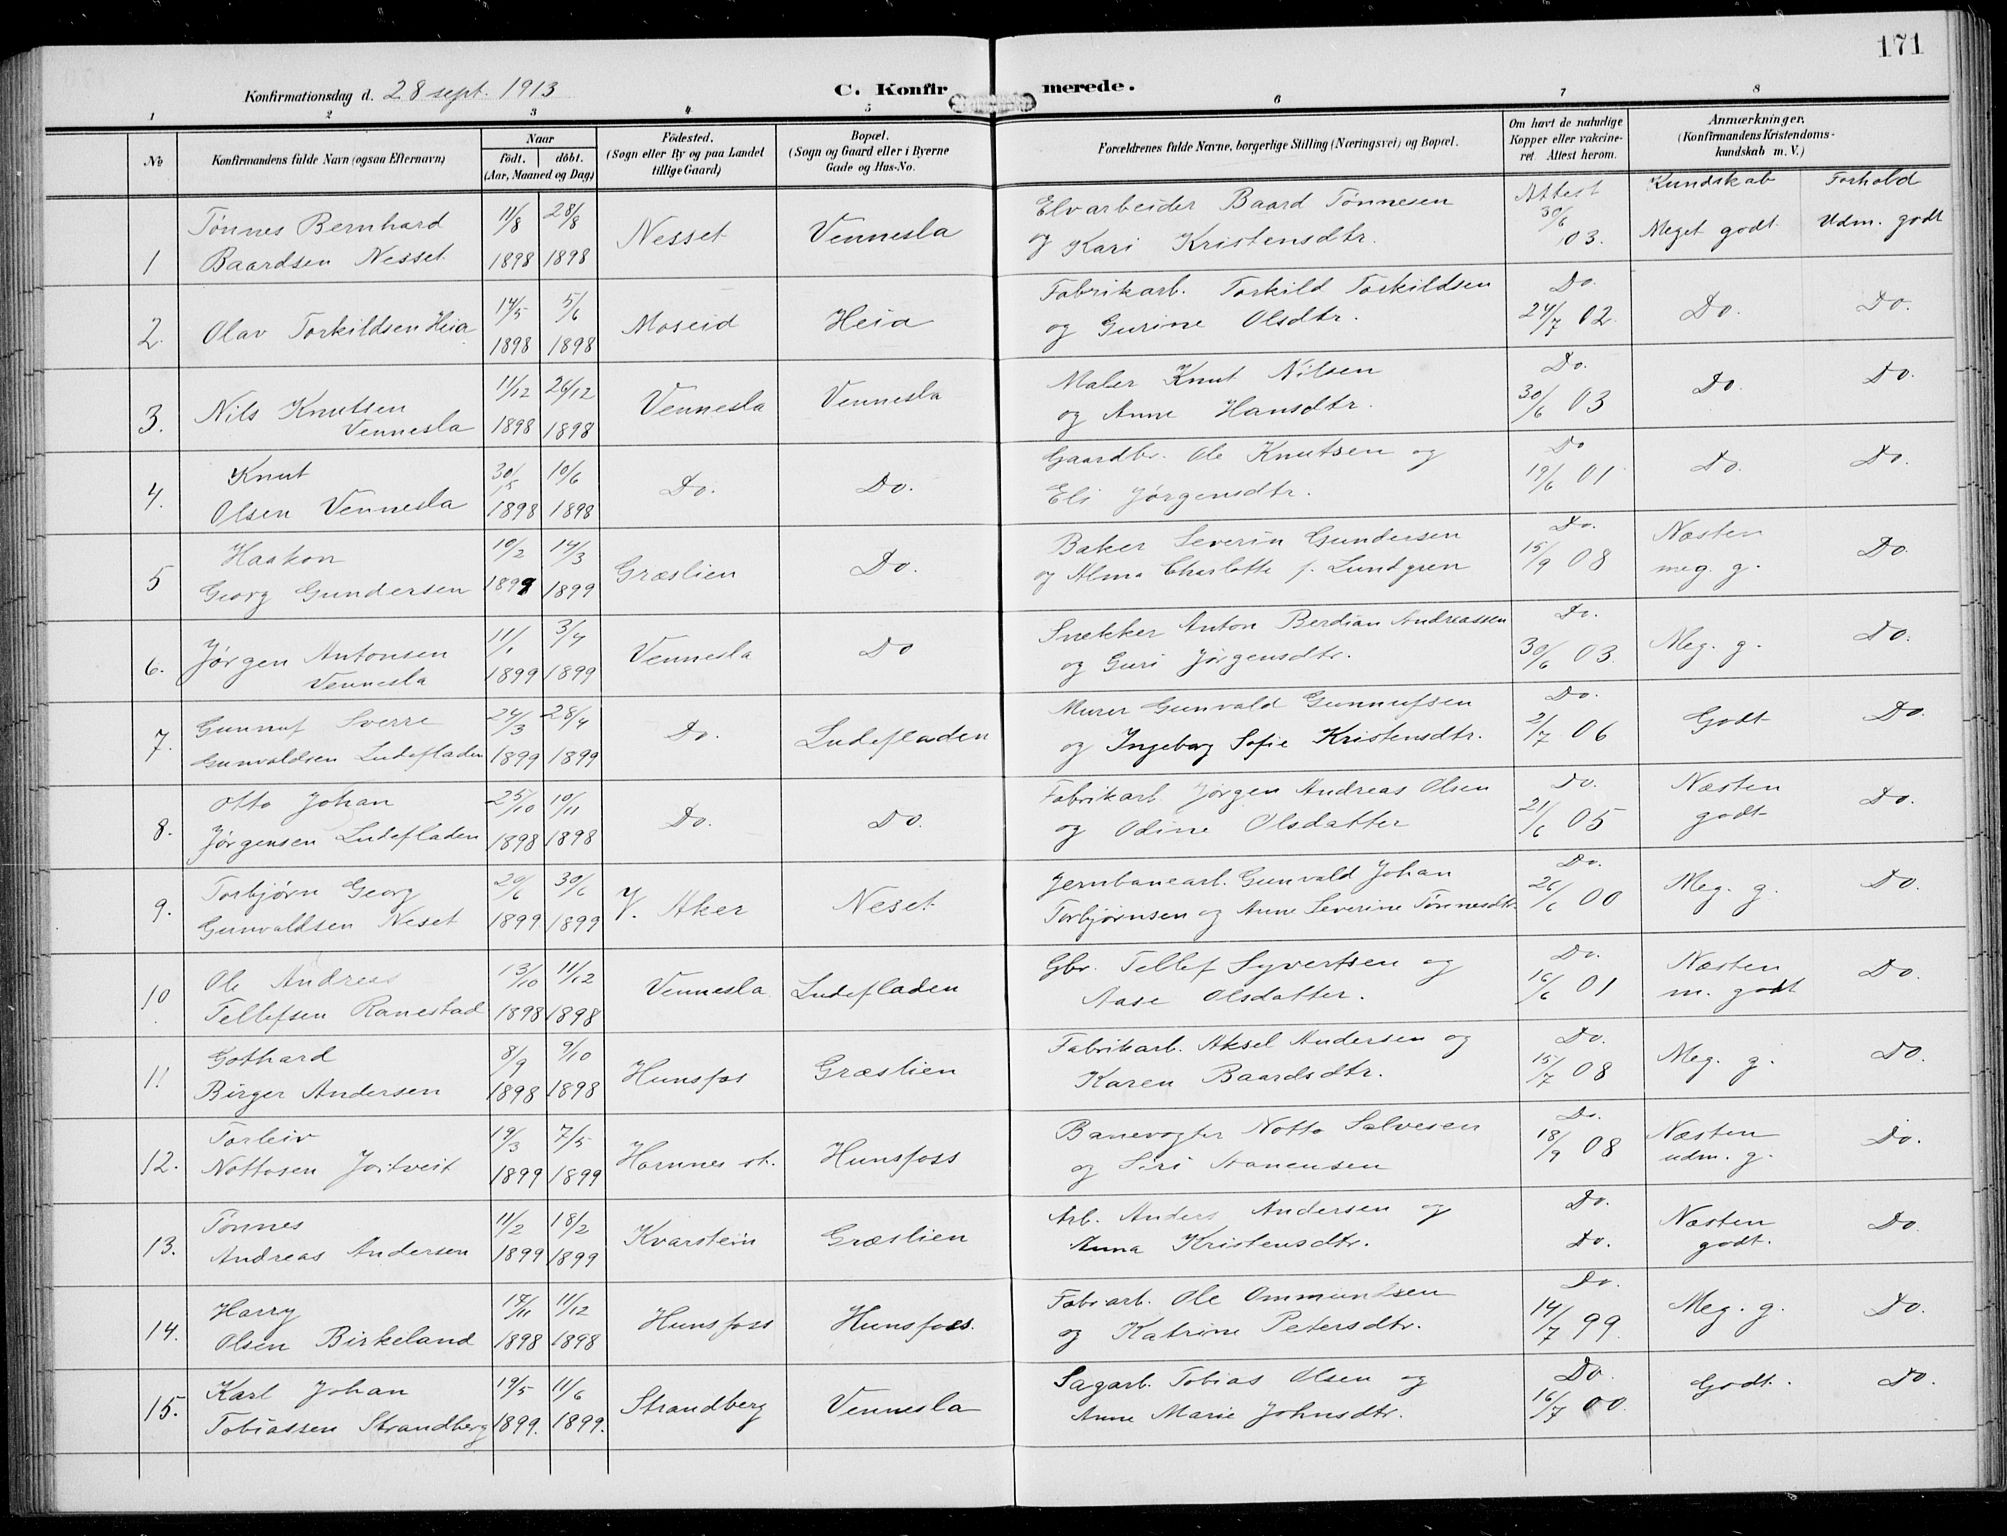 171
Konfirmationsdag d. 28 sept. 1913
C. Konfirmerede.
1 2 3 4 5 6 7 8
No
Konfirmandens fulde Navn (ogsaa Efternavn)
Naar
födt. döbt.
(Aar, Maaned og Dag)
Födested.
(Sogn eller By og paa Landet
tillige Gaard)
Bopæl.
(Sogn og Gaard eller i Byerne
Gade og Hus-No.
Forældrenes fulde Navne, borgerlige Stilling (Næringsvei) og Bopæl.
Om havt de naturlige
Kopper eller vakcine-
ret. Attest herom.
Anmærkninger.
(Konfirmandens Kristendoms-
kundskab m. V.)
Kundskab Forhold
Tønnes Bernhard 11/8 28/8 Nesset Vennesla Elvarbeider Baard Tønnesen Attest 30/6 Meget godt Udm. godt
1 Baardsen Nesset 1898 1898 og Kari Kristensdtr. 03.
14/5 5/6 Fabrikarb. Torkild Torkildsen Do.
2. Olav Torkildsen Heia 1898 1898 Moseid Heia og Gurine Olsdtr. 24/7 02. Do. Do.
Nils Knutsen 11/12 26/12 Vennesla Vennesla Maler Knut Nilsen Do. Do. Do.
3. Vennesla 1898 1898 og Anne Hansdtr. 30/6 03
Knut 30/5 10/6 Do. Do. Gaardbr. Ole Knutsen og Do Do. Do.
4. Olsen Vennesla 1898 1898 Eli Jørgensdtr. 19/6 01
Haakon 10/2 14/3 Græslien Do. Baker Severin Gundersen Do. Næsten Do.
5 Georg Gundersen 1899 1899 og Alma Charlotte f. Lundgren 15/9 08 meg. g.
Jørgen Antonsen 11/1 3/4 Vennesla Do Snekker Anton Berdian Andreassen Do. Meg. g. Do.
6. Vennesla 1899 1899 og Guri Jørgensdtr. 30/6 03.
Gunnuf Sverre 24/3 28/4 Do. Ludefladen Murer Gunvald Gunnufsen Do. Godt Do.
7. Gunvaldsen Ludefladen 1899 1899 og Ingeborg Sofie Kristensdtr. 2/7 06
Otto Johan 25/10 10/11 Do. Do. Fabrikarb. Jørgen Andreas Olsen Do. Næsten Do.
8. Jørgensen Ludefladen 1898 1898 og Odine Olsdatter 21/6 05 godt
Torbjørn Georg 20/6 30/6 V. Aker Neset Jernbanearb. Gunvald Johan Do. Meg. g. Do.
9. Gunvaldsen Neset 1899 1899 Torbjørnsen og Anne Severine Tønnesdtr 26/6 00
Ole Andreas 13/10 11/12 Vennesla Ludefladen Gbr. Tellef Syvertsen og Do. Næsten Do.
10 Tellefsen Ranestad 1898 1898 Aase Olsdatter. 16/6 01 m. godt
Gothard 8/9 9/10 Hunsfos Græslien Fabrikarb. Aksel Andersen og Do. Meg. g. Do.
11 Birger Andersen 1898 1898 Karen Baardsdtr. 15/7 08
Torleiv 19/3 7/5 Hornnes st. Hunsfoss Banevogter Notto Salvesen Do. Næsten Do.
12. Nottosen Jortveit 1899 1899 og Siri 18/9 08 udm. g.
Tønnes 11/2 18/2 Kvarstein Græslien Arb. Anders Andersen og Do. Næsten Do.
13. Andreas Andersen 1899 1899 Anna Kristensdtr. Do. godt.
Harry 17/11 11/12 Hunsfoss Hunsfoss. Fabr.arb. Ole Ommundsen Do. Meg. g. Do.
14. Olsen Birkeland 1898 1898 og Katrine Petersdtr. 14/7 99
Karl Johan 19/5 11/6 Strandberg Vennesla Sagarb. Tobias Olsen og Do. Godt. Do.
15. Tobiassen Strandberg 1899. 1899. Anne Marie Johnsdtr. 16/7 00.